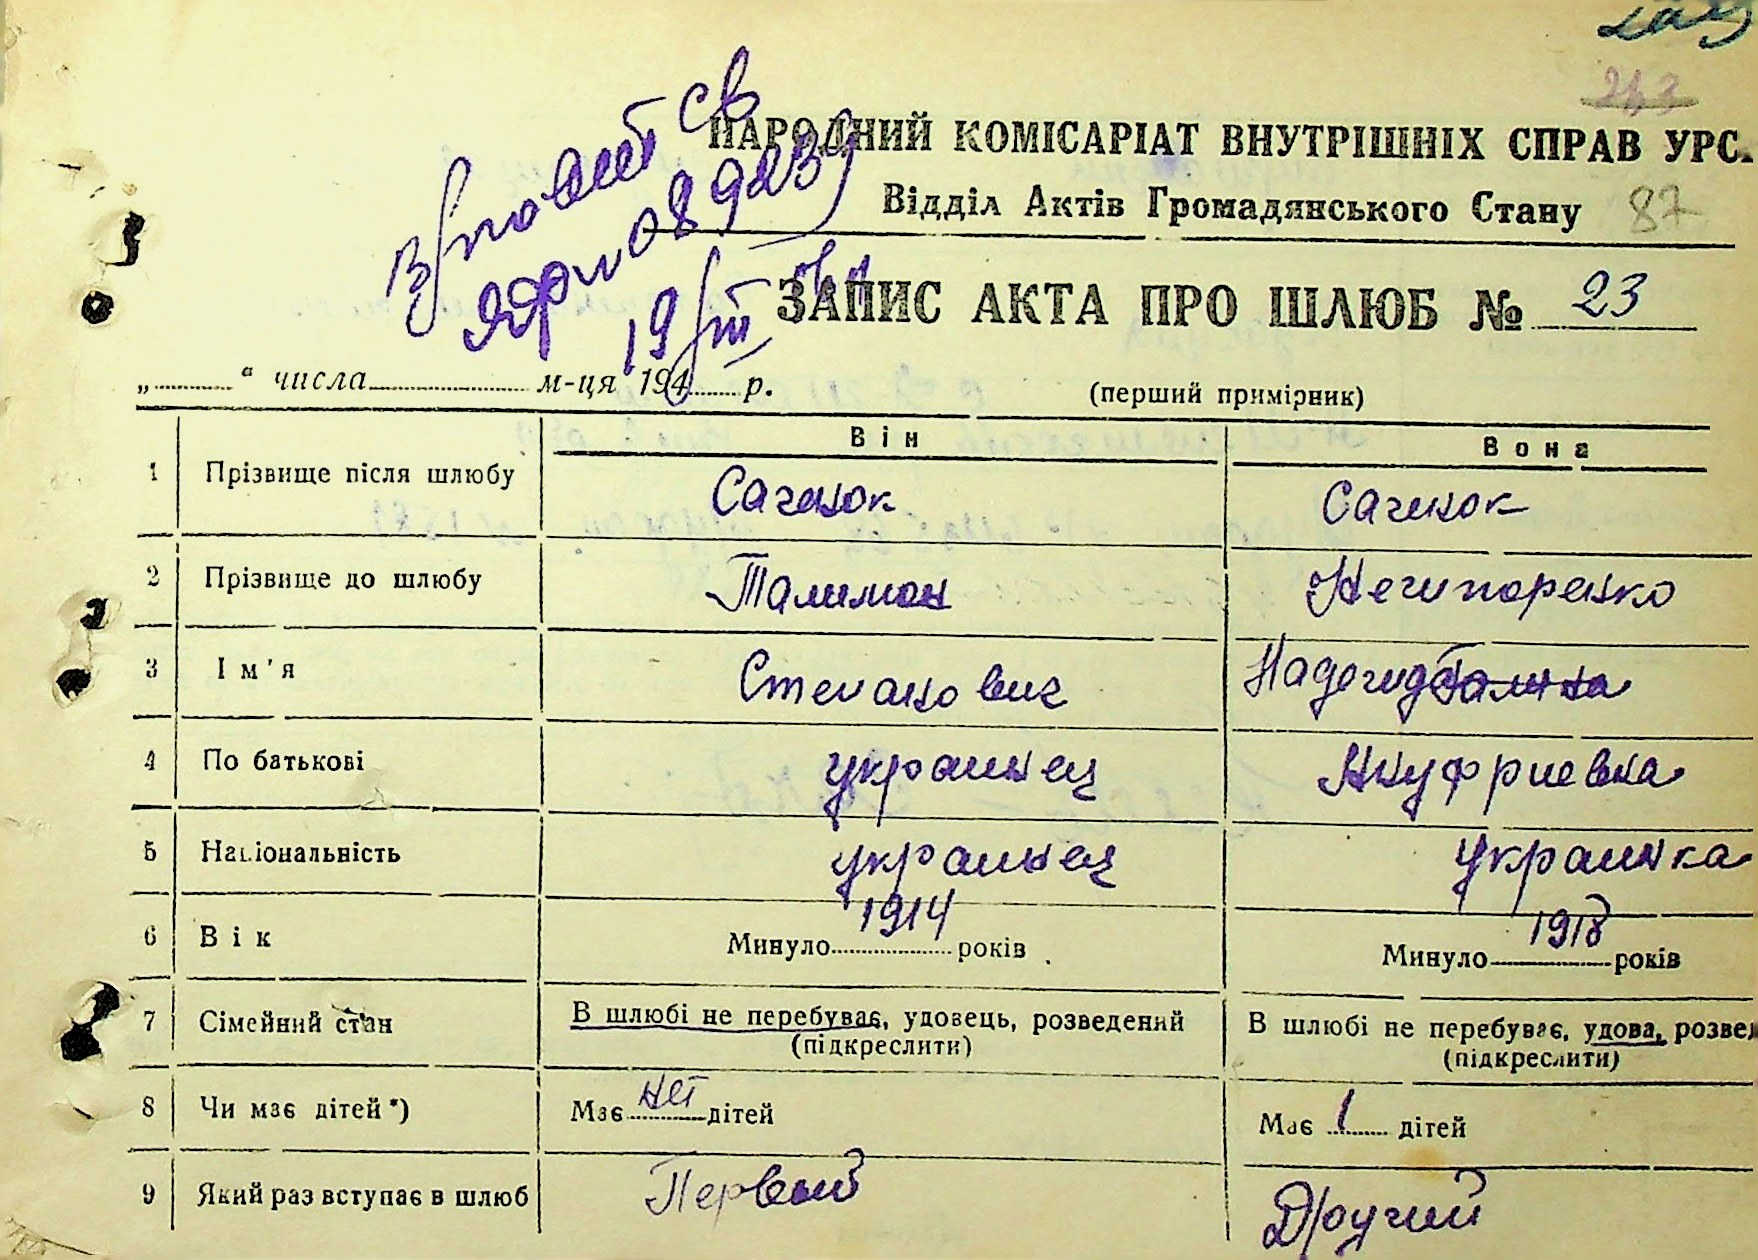 263
НАРОДНИЙ КОМІСАРІАТ ВНУТРІШНІХ СПРАВ УРС.
Відділ Актів Громадянського Стану 87
19/III
ЗАПИС АКТА ПРО ШЛЮБ № 23
„ “ числа м-ця 194 р. (перший примірник)
Він Вона
1 Прізвище після шлюбу Саченок Саченок
2 Прізвище до шлюбу Талимон Нечипоренко
3 Ім'я Степанович Надежда Галина
4 По батькові украинец Ануфриевна
5 Національність украинец украинка
6 Вік Минуло 1914 років Минуло 1918 років
7 Сімейний стан В шлюбі не перебуває, удовець, розведений В шлюбі не перебуває, удова, розве
(підкреслити) (підкреслити)
8 Чи має дітей*) Має нет дітей Має 1 дітей
9 Який раз вступає в шлюб Первый Другий